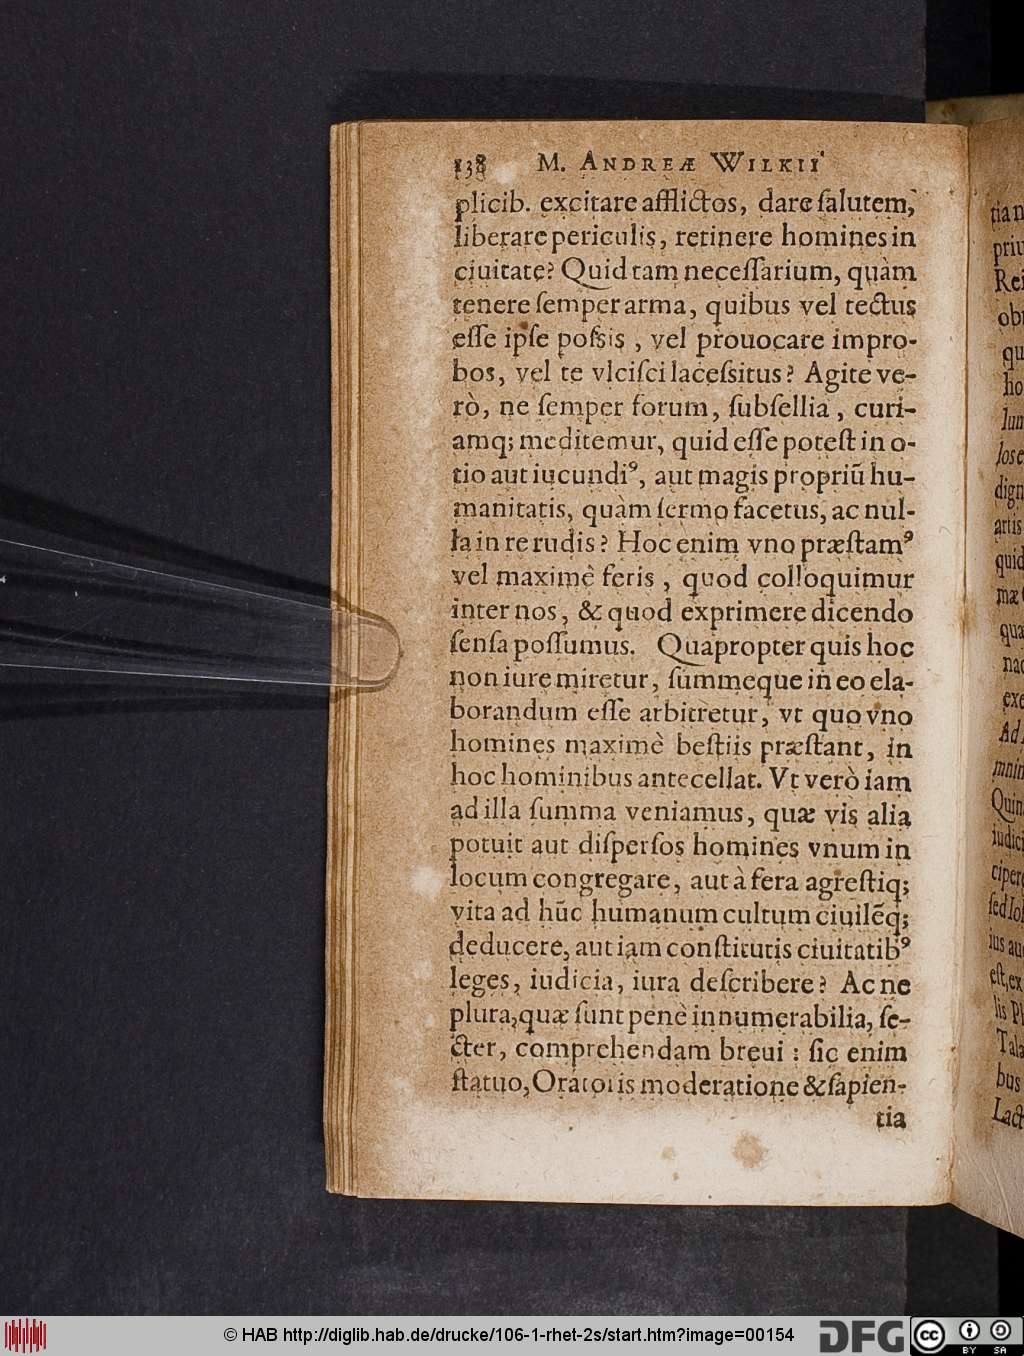 138 M. ANDREÆ WILKII
plicib. excitare afflictos, dare ſalutem,
liberare periculis, retinere homines in
ciuitate? Quid tam neceſſarium, quàm
tenere ſemper arma, quibus vel tectus
eſſe ipſe poſsis, vel prouocare impro-
bos, vel te vlciſci laceſsitus? Agite ve-
rò, ne ſemper forum, ſubſellia, curi-
amq; meditemur, quid eſſe poteſt in o-
tio aut iucundiꝰ, aut magis propriū hu-
manitatis, quàm ſermo facetus, ac nul-
la in re rudis? Hoc enim vno præſtamꝰ
vel maximè feris, quod colloquimur
inter nos, & quod exprimere dicendo
ſenſa poſſumus. Quapropter quis hoc
non iure miretur, ſummeque in eo ela-
borandum eſſe arbitretur, vt quo vno
homines maximè beſtiis præſtant, in
hoc hominibus antecellat. Vt verò iam
ad illa ſumma veniamus, quæ vis alia
potuit aut diſperſos homines vnum in
locum congregare, aut à fera agreſtiq;
vita ad hūc humanum cultum ciuilēq;
deducere, aut iam conſtitutis ciuitatibꝰ
leges, iudicia, iura deſcribere? Ac ne
plura, quæ ſunt penè innumerabilia, ſe-
cter, comprehendam breui: ſic enim
ſtatuo, Oratoris moderatione & ſapien-
tia
tia n
priu
Rei
obt
qu
ho
lun
los e
dign
artis
quid
mæ
qua
nac
exe
Ad
mnin
Quin
iudici
cipere
ſed Ioh
ius au
eſt, ex
lis Pl
Tala
bus
Lact
© HAB http://diglib.hab.de/drucke/106-1-rhet-2s/start.htm?image=00154
DFG
cc BY SA